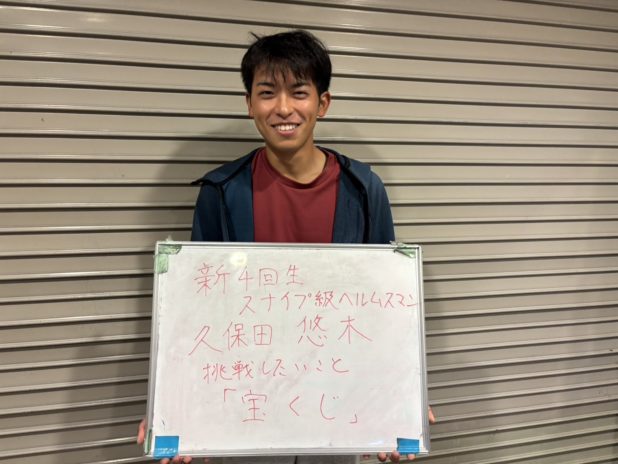 新4回生
スナイプ級ヘルムスマン
久保田 悠木
挑戦したいこと
「宝くじ」